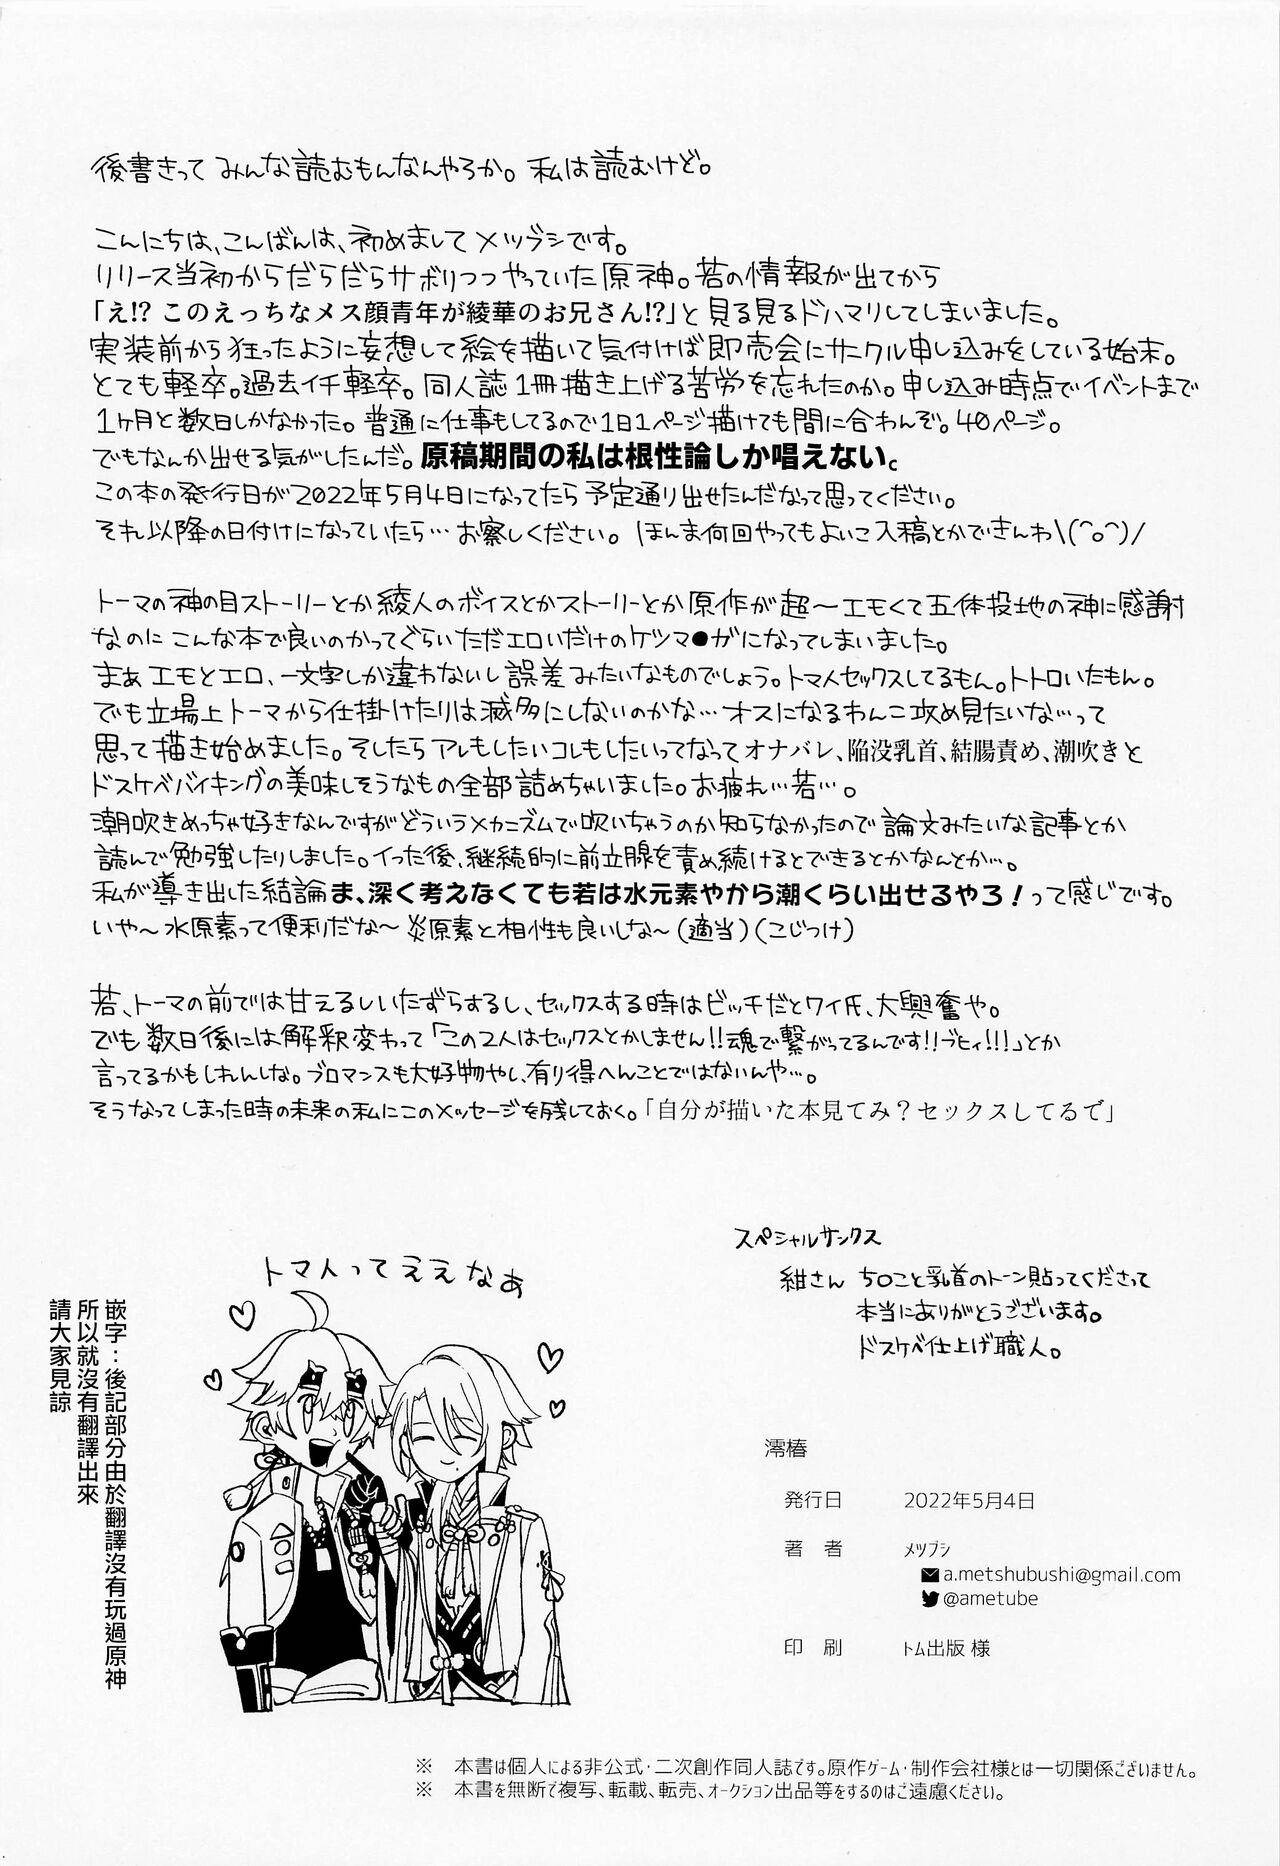 後書きって みんな読むもんなんやろか。私は読むけど。
こんにちは、こんばんは、初めまして メツブシです。
リリース当初からだらだらサボりつつやっていた原神。若の情報が出てから
「え!? このえっちなメス顔青年が綾華のお兄さん!?」と見る見るドハマりしてしまいました。
実装前から狂ったように妄想して絵を描いて気付けば即売会にサークル申し込みをしている始末。
とても軽卒。過去イチ軽卒。同人誌1冊描き上げる苦労を忘れたのか。申し込み時点でイベントまで
1ヶ月と数日しかなかった。普通に仕事もしてるので1日1ページ描けても間に合わんぞ。40ページ。
でもなんか出せる気がしたんだ。原稿期間の私は根性論しか唱えない。
この本の発行日が2022年5月4日になってたら予定通り出せたんだなって思ってください。
それ以降の日付けになっていたら…お察しください。ほんま何回やってもよいこ入稿とかできんわ\(^o^)/
トーマの神の目ストーリーとか綾人のボイスとかストーリーとか原作が超〜エモくて五体投地の神に感謝
なのにこんな本で良いのかってぐらいただエロいだけのケツマ●ガになってしまいました。
まぁエモとエロ、一文字しか違わないし誤差みたいなものでしょう。トマ人セックスしてるもん。トトロいたもん。
でも立場上トーマから仕掛けたりは滅多にしないのかな…オスになるわんこ攻め見たいな…って
思って描き始めました。そしたらアレもしたいコレもしたいってなってオナバレ、陥没乳首、結腸責め、潮吹きと
ドスケベバイキングの美味しそうなもの全部詰めちゃいました。お疲れ…若…。
潮吹きめっちゃ好きなんですがどういうメカニズムで吹いちゃうのか知らなかったので論文みたいな記事とか
読んで勉強したりしました。イった後、継続的に前立腺を責め続けるとできるとかなんとか…。
私が導き出した結論ま、深く考えなくても若は水元素やから潮くらい出せるやろ！って感じです。
いや〜水原素って便利だな〜炎原素と相性も良いしな〜(適当)(こじつけ)
若、トーマの前では甘えるしいたずらするし、セックスする時はビッチだとワイ氏、大興奮や。
でも数日後には解釈変わって「この2人はセックスとかしません!!魂で繋がってるんです!!ブヒィ!!!」とか
言ってるかもしれんしな。ブロマンスも大好物やし、有り得へんことではないんや…。
そうなってしまった時の未来の私にこのメッセージを残しておく。「自分が描いた本見てみ？セックスしてるで」
スペシャルサンクス
紺さん ちOこと乳首のトーン貼ってくださって
本当にありがとうございます。
ドスケベ仕上げ職人。
トマ人ってええなぁ
嵌字：後記部分由於翻譯沒有玩過原神
所以就沒有翻譯出來
請大家見諒
澪椿
発行日 2022年5月4日
著 者 メツブシ
a.metshubushi@gmail.com
@ametube
印 刷 トム出版 様
※ 本書は個人による非公式・二次創作同人誌です。原作ゲーム・制作会社様とは一切関係ございません。
※ 本書を無断で複写、転載、転売、オークション出品等をするのはご遠慮ください。